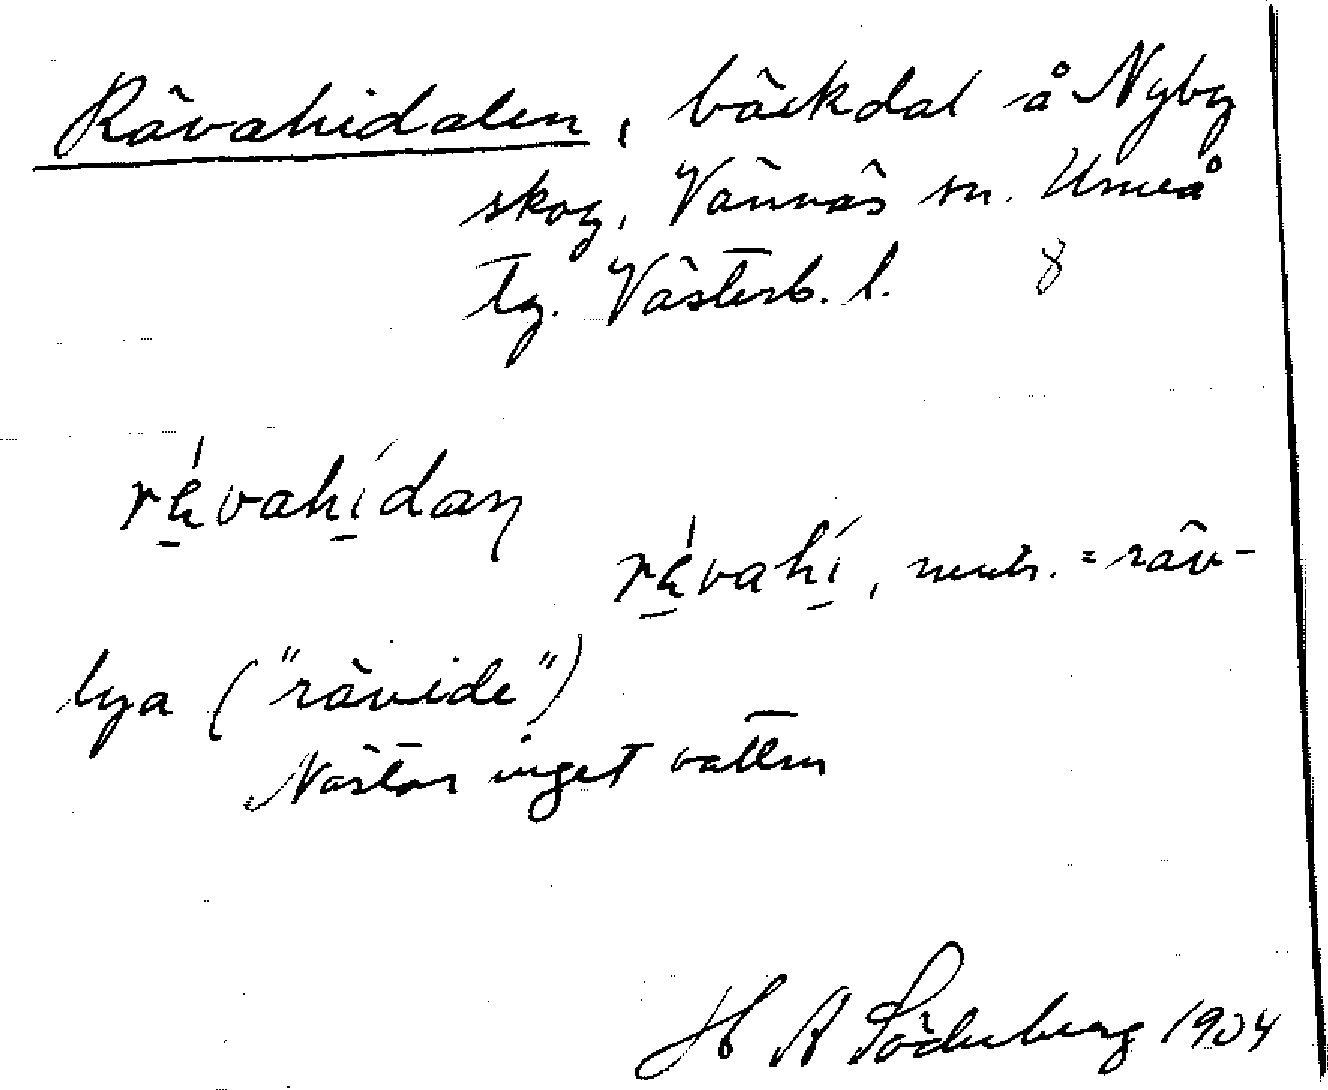 Rävahidalen, bäckdal å Nyby
skog, Vännäs sn. Umeå
tg. Västerb. l. 8
rävahi, neutr. = räv-
lya ("rävide")
Nästan inget vatten
H A Söderberg 1904